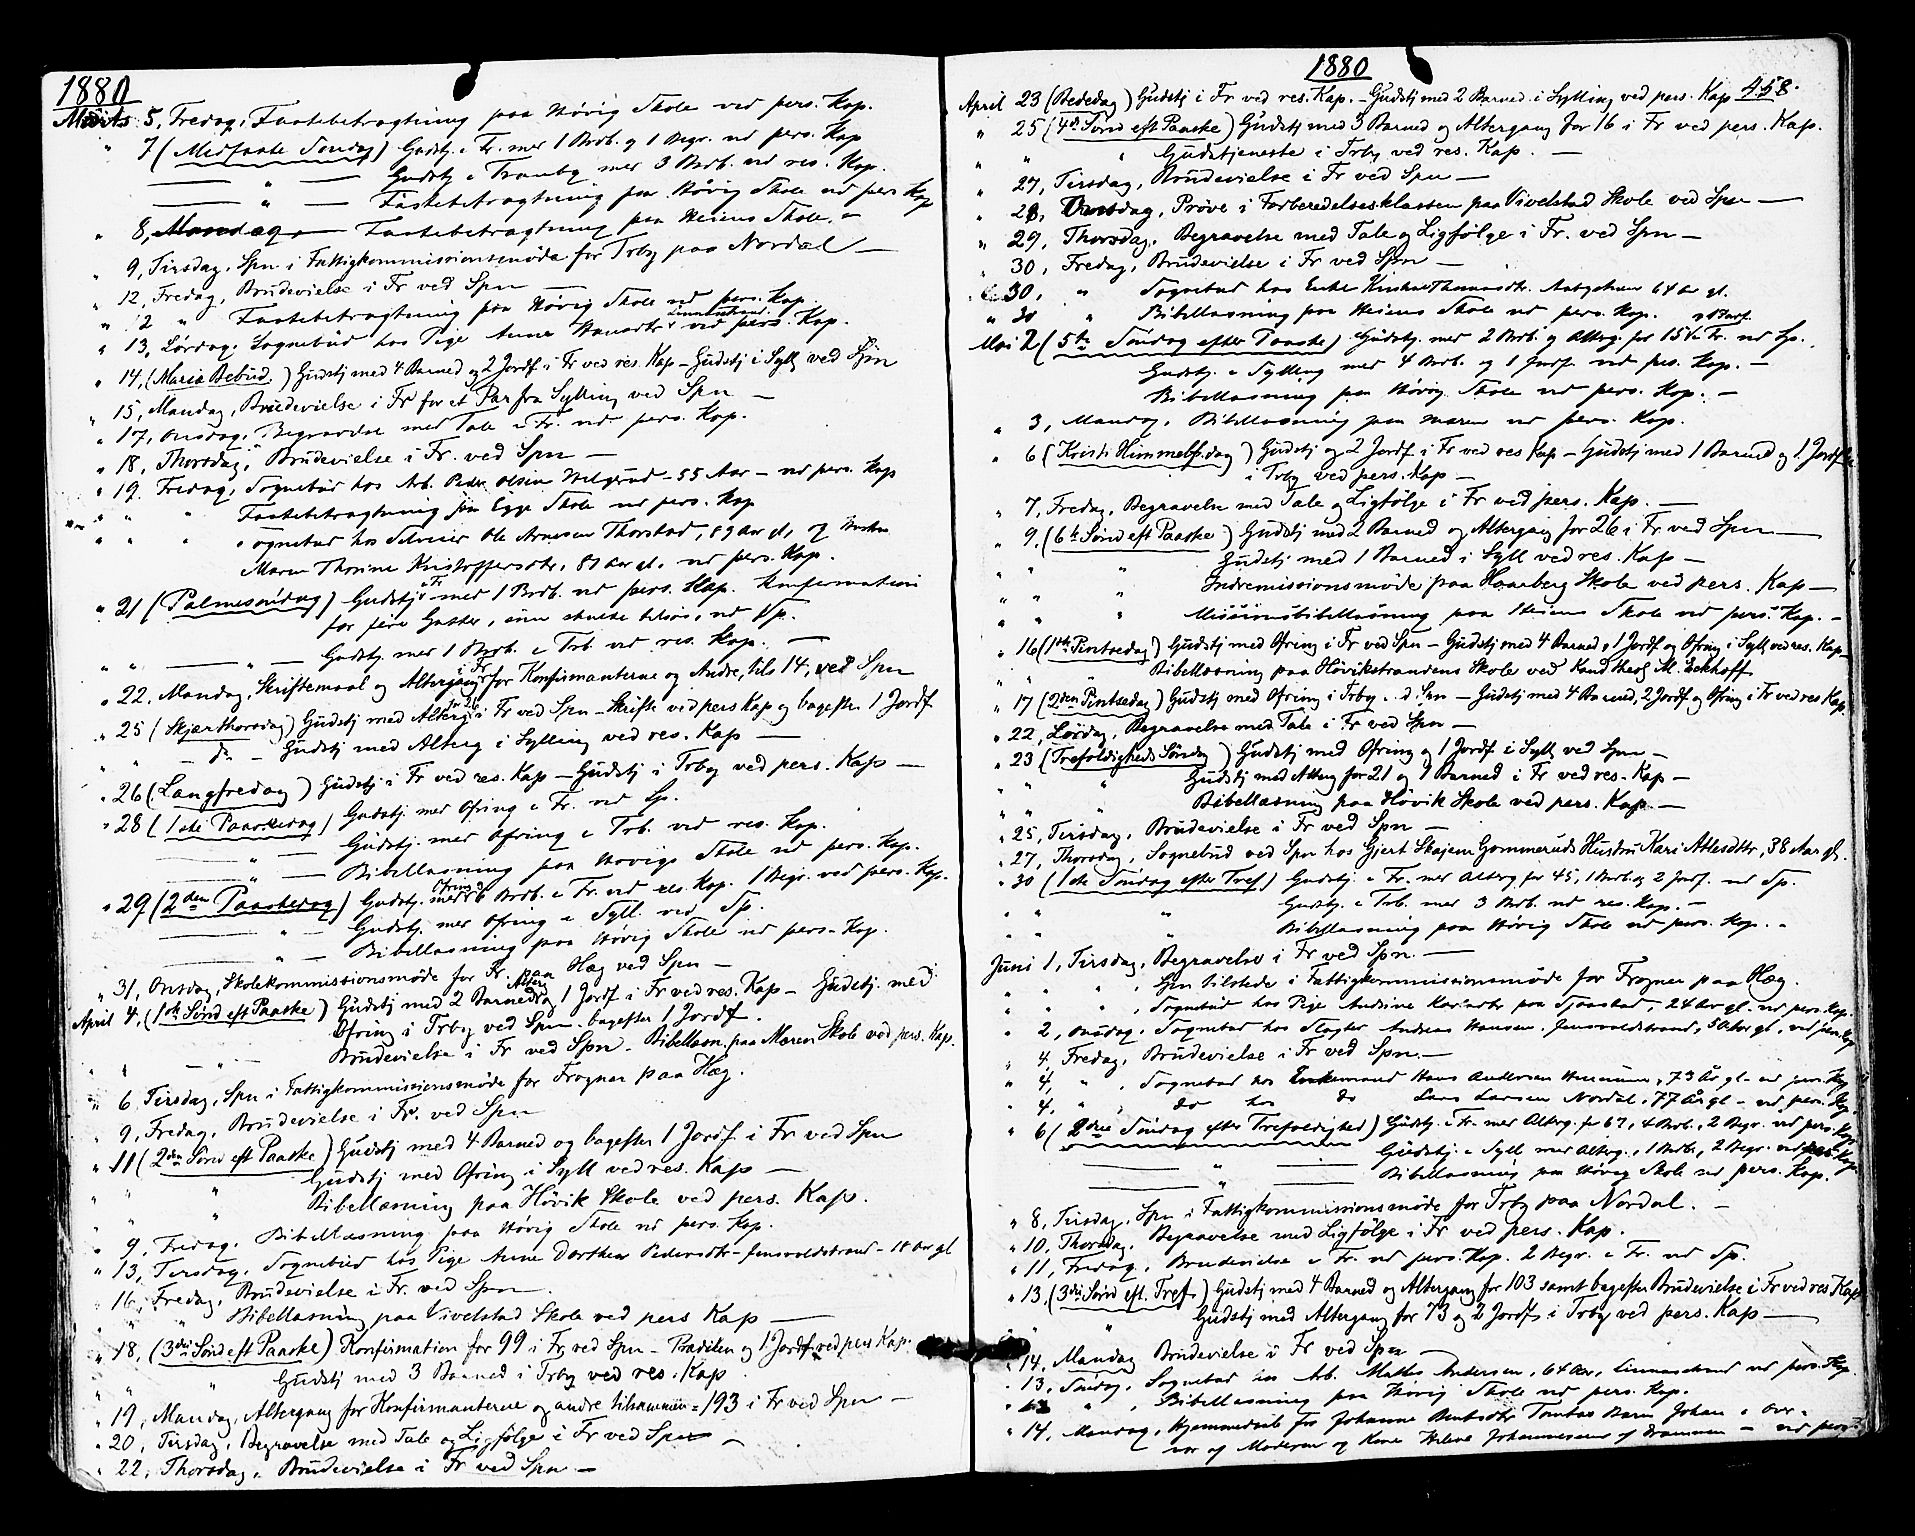 1880
Marts 5, Fredag, Fastebetragtning paa Høvig Skole ved pers. Kap.
" 7 (Midfaste Søndag) Gudstj. i Fr. med 1 Brdb. og 1 Begr. ved pers. Kap
" Gudstj i Tranby med 3 Brdb. ved res. Kap.
" Fastebetragtning paa Høvig Skole ved pers Kap
" 8, Mandag Fastebetragtning paa Heiens Skole. –
" 9, Tirsdag, Spn i Fattigkommissionsmøde for Trby paa Nordal –
" 12, Fredag, Brudevielse i Fr ved Spn –
" 12 " Fastebetragtning paa Høvig Skole ved pers. Kap.
" 13, Lørdag. Sognebud hos Pige Anne ved pers. Kap.
" 14, (Maria Bebud.) Gudstj med 4 Barned og 2 Jordf i Fr ved res. Kap – Gudstj i Syll ved Spn
" 15, Mandag, Brudevielse i Fr for et Par fra Sylling ved Spn –
" 17, Onsdag. Begravelse med Tale i Fr. ved pers. Kap.
" 18, Thorsdag, Brudevielse i Fr. ved Spn –
" 19. Fredag, Sognebud hos Arb. Peder Olsen – 55 Aar – ved pers. Kap
" " " Fastebetragtning paa Egge Skole ved pers. Kap
" " " Sognebud hos Ole Arnesen Thorstad, 89 Aar gl, og
Maren Thorine Kristoffersdtr, 81 Aar gl. ved pers. Kap.
" 21 (Palmesøndag) Gudstj i Fr med 1 Brdb. ved pers. Kap. Konfirmation
for fire Gutter, ved Sp.
" " Gudstj. med 1 Brdb. i Trb. ved res. Kap. –
" 22. Mandag, Skriftemaal og Altergang i Fr for Konfirmanterne og Andre, tils 14, ved Spn
" 25 (Skjærthorsdag) Gudstj med Alterg i Fr ved Spn – Skrifte ved pers Kap og bagefter 1 Jordf
" " – do – Gudstj med Alterg i Sylling ved res. Kap –
" 26 (Langfredag) Gudstj i Fr ved res. Kap – Gudstj i Trby ved pers. Kap –
" 28 (1ste Paaskedag) Gudstj med Ofring i Fr. ved Sp.
" Gudstj. med Ofring i Trb. ved res. Kap.
" Bibellæsning paa Høvigs Skole ved pers. Kap.
" 29 (2den Paaskedag) Gudstj. med Ofring og 6 Brdb. i Fr. ved res. Kap. 1 Begr. ved pers. Kap.
" Gudstj. med Ofring i Syll. ved Sp.
" Bibellæsning paa Høvig Skole ved pers. Kap.
" 31, Onsdag, Skolekommissionsmøde for Fr. paa Hæg ved Spn –
April 4, (1ste Sønd eft Paaske) Gudstj med 2 Barned Alterg og 1 Jordf i Fr ved res. Kap – Gudstj. med
Ofring i Trby ved Spn. bagefter 1 Jordf.
" " – " – Brudevielse i Fr ved Spn – Bibellæsn. paa Maren Skole ved pers. Kap.
" 6, Tirsdag, Spn i Fattigkommissionsmøde for Frogner paa Hæg.
" 9, Fredag, Brudevielse i Fr. ved Spn
" 11 (2den Sønd eft Paaske) Gudstj med 4 Barned og bagefter 1 Jordf. i Fr ved Spn
" " " Gudstj med Ofring i Syll ved res. Kap –
" " " Bibellæsning paa Høvik Skole ved pers. Kap.
" 9, Fredag. Bibellæsning paa Høvig Skole ved pers. Kap.
" 13, Tirsdag. Sognebud hos Pige Anne Dorthea Pedersdtr – Jensvoldstrand – 18 Aar gl
" 16, Fredag, Brudevielse i Fr. ved Spn.
" " " Bibellæsning paa Vivelstad Skole ved pers Kap –
" 18, (3die Sønd eft Paaske) Konfirmation for 99 i Fr ved Spn – Prædiken og 1 Jordf ved pers Kap.
" " " Gudstj med 3 Barned i Trby ved res. Kap
" 19, Mandag, Altergang for Konfirmanterne og andre tilsammen = 193 i Fr ved Spn –
" 20, Tirsdag, Begravelse med Tale og Ligfølge i Fr ved Spn –
" 22, Thorsdag, Brudevielse i Fr ved Spn –
1880
458.
April 23 (Bededag) Gudstj i Fr ved res. Kap. – Gudstj med 2 Barned. i Sylling ved pers. Kap
" 25 (4de Sønd eft Paaske) Gudstj med 3 Barned og Altergang for 16 i Fr ved pers. Kap.
" " " Gudstjeneste i Trby ved res. Kap. –
" 27, Tirsdag, Brudevielse i Fr ved Spn –
" 28, Onsdag, Prøve i Forberedelsesklassen paa Vivelstad Skole ved Spn –
" 29, Thorsdag, Begravelse med Tale og Ligfølge i Fr. ved Spn –
" 30, Fredag, Brudevielse i Fr ved Spn –
" 30, " Sognebud hos Enke Thomasdtr. 64 Aar gl.
" 30 " Bibellæsning paa Heiens Skole ved pers. Kap.
Mai 2 (5te Søndag efter Paaske) Gudstj. med 2 Brdb. og Altrg. for 15 i Fr. ved Sp.
Gudstj. i Sylling med 4 Brdb. og 1 Jordf. ved res. Kap. –
Bibellæsning paa Høvig Skole ved pers. Kap. –
" 3, Mandag, Bibellæsning paa Maren ved pers. Kap.
" 6 (Kristi Himmelf.dag) Gudstj og 2 Jordf i Fr ved res Kap – Gudstj med 1 Barned og 1 Jordf
i Trby ved pers. Kap –
" 7, Fredag, Begravelse med Tale og Ligfølge i Fr ved pers. Kap. –
" 9, (6te Sønd eft Paaske) Gudstj med 2 Barned og Altergang for 26 i Fr ved Spn –
" " " Gudstj med 1 Barned i Syll ved res. Kap –
" " " Indremissionsmøde paa Haaberg Skole ved pers. Kap –
" " " Missionsbibellæsning paa Heiens Skole ved pers. Kap. –
" 16 (1ste Pintsedag) Gudstj med Ofring i Fr ved Spn – Gudstj med 4 Barned, 1 Jordf og Ofring i Syll. ved res. Kap –
" " Bibellæsning paa Hövikstrandens Skole ved Kand theol M. Eckhoff
" 17 (2den Pintsedag) Gudstj med Ofring i Trby v. d. Spn – Gudstj med 4 Barned, 2 Jordf og Ofring i Fr ved res Kap.
" 22, Lørdag, Begravelse med Tale i Fr ved Spn –
" 23 (Trefoldigheds Søndag) Gudstj med Ofring og 1 Jordf i Syll ved Spn –
" " " Gudstj med Alterg for 21 og 7 Barned i Fr ved res. Kap –
" " " Bibellæsning paa Hövik Skole ved pers. Kap. –
" 25, Tirsdag, Brudevielse i Fr ved Spn –
" 27, Thorsdag, Sognebud ved Spn hos Gjert Skajem Gommeruds Hustru Kari Atlesdttr, 38 Aar gl.
" 30 (1ste Søndag efter Tref) Gudstj. i Fr. med Alterg for 45, 1 Brdb. og 2 Jordf. ved Sp.
" " " Gudstj. i Trb. med 3 Brdb. ved res. Kap. –
" " " Bibellæsning paa Høvig Skole ved pers. Kap. –
Juni 1, Tirsdag, Begravelse i Fr ved Spn. –
" " ", Spn tilstede i Fattigkommissionsmøde for Frogner paa Hæg.
" " ", Sognebud hos Pige Andrine paa , 24 Aar gl. ved pers. Kap.
" 2, Onsdag, Sognebud hos Slagter Andreas Hansen, Jensvoldstrand, 50 Aar gl, ved pers. Kap
" 4, Fredag, Brudevielse i Fr ved Spn. –
" 4, " , Sognebud hos Enkemand Hans Andersen , 73 År gl – ved pers. Kap
" 4, " , do hos do Lars Larsen Nordal, 77 År gl – ved pers. Kap.
" 6 (2den Søndag efter Trefoldighed) Gudstj. i Fr. med Altrg. for 67, 4 Brdb., 2 Begr. ved pers. Kap
" Gudstj. i Syll med Altrg., 1 Brdb., 2 Begr. ved res. Kap
" Bibellæsning paa Høvig Skole ved pers. Kap.
" 8, Tirsdag, Spn i Fattigkommissionsmøde for Trby paa Nordal. –
" 10, Thorsdag. Begravelse med Ligfølge i Fr ved pers. Kap.
" 11, Fredag, Brudevielse i Fr. ved pers. Kap. 2 Begr. i Fr. ved Sp.
" 13. (3die Sønd eft. Tref.) Gudstj med 4 Barned og Altergang for 103 samt bagefter Brudevielse i Fr ved res Kap
" " " Gudstj med Altergang for 73 og 2 Jordf i Trby ved pers. Kap –
" 14, Mandag Brudevielse i Fr ved Spn –
" 13, Søndag, Sognebud hos Arb. Mathis Andersen, 64 Aar, Linnesstrand ved pers. Kap.
" 13 " , Bibellæsning paa Høvig Skole ved pers. Kap.
" 14, Mandag, Hjemmedaab for Johanne Barn Johan
af Moderen og Kone Helene Johannesen af Drammen – ved pers.